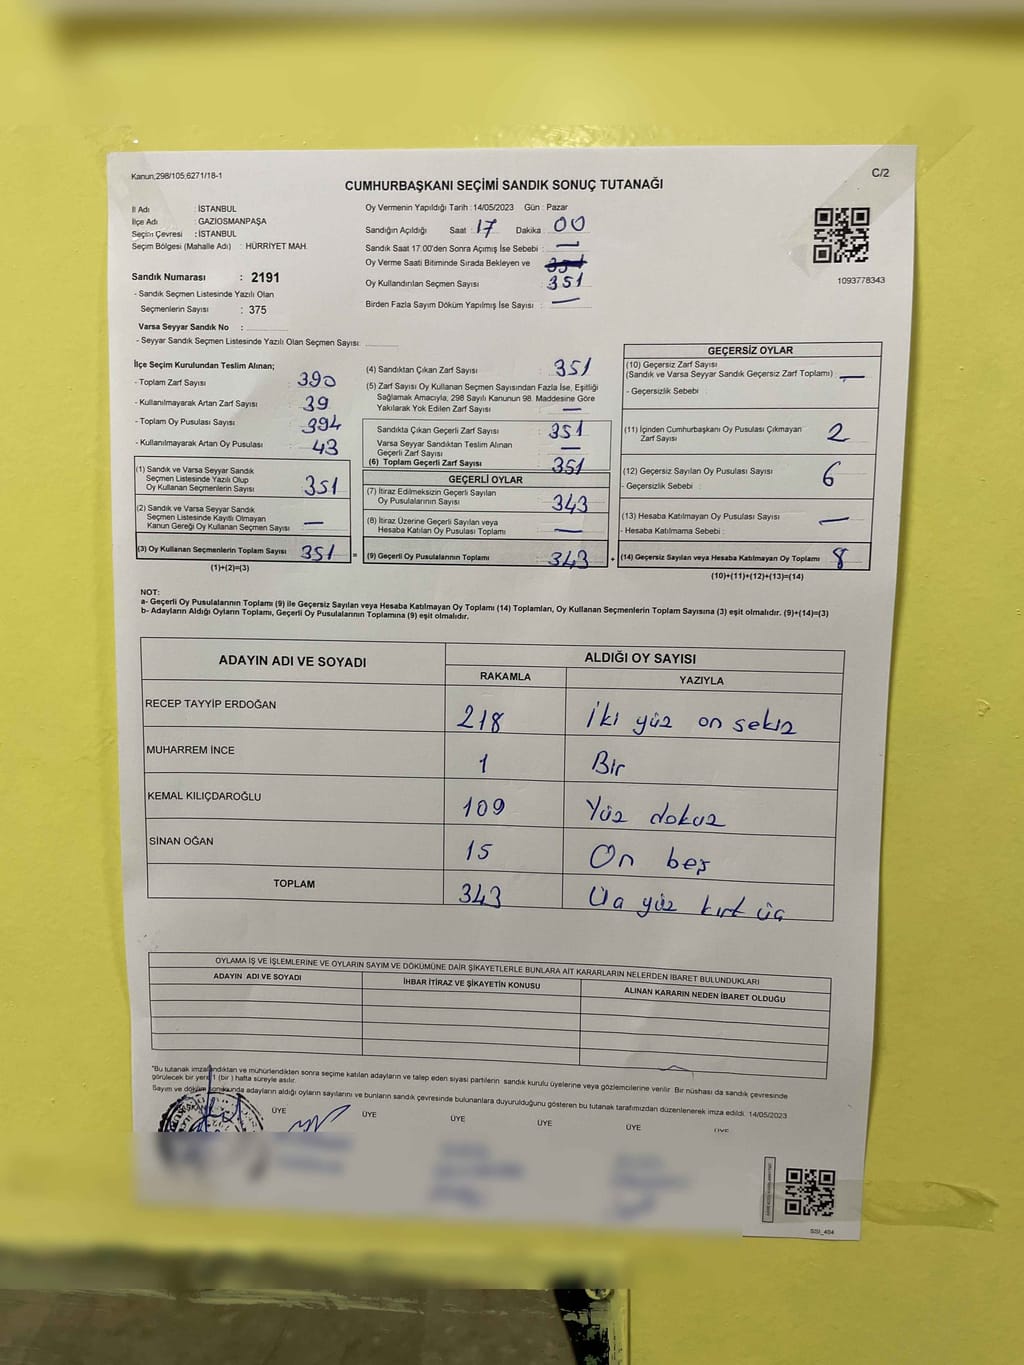 Kanun,298/105;6271/18-1
C/2
CUMHURBAŞKANI SEÇİMİ SANDIK SONUÇ TUTANAĞI
İl Adı : İSTANBUL
İlçe Adı : GAZİOSMANPAŞA
Seçim Çevresi : İSTANBUL
Seçim Bölgesi (Mahalle Adı) : HÜRRİYET MAH.
Sandık Numarası : 2191
- Sandık Seçmen Listesinde Yazılı Olan
Seçmenlerin Sayısı : 375
Varsa Seyyar Sandık No :
- Seyyar Sandık Seçmen Listesinde Yazılı Olan Seçmen Sayısı:
Oy Vermenin Yapıldığı Tarih : 14/05/2023 Gün : Pazar
Sandığın Açıldığı Saat : 17 Dakika : 00
Sandık Saat 17.00'den Sonra Açımış İse Sebebi : —
Oy Verme Saati Bitiminde Sırada Bekleyen ve
Oy Kullandırılan Seçmen Sayısı : 351
Birden Fazla Sayım Döküm Yapılmış İse Sayısı : —
1093778343
İlçe Seçim Kurulundan Teslim Alınan;
- Toplam Zarf Sayısı : 390
- Kullanılmayarak Artan Zarf Sayısı : 39
- Toplam Oy Pusulası Sayısı : 394
- Kullanılmayarak Artan Oy Pusulası : 43
(1) Sandık ve Varsa Seyyar Sandık
Seçmen Listesinde Yazılı Olup
Oy Kullanan Seçmenlerin Sayısı : 351
(2) Sandık ve Varsa Seyyar Sandık
Seçmen Listesinde Kayıtlı Olmayan
Kanun Gereği Oy Kullanan Seçmen Sayısı : —
(3) Oy Kullanan Seçmenlerin Toplam Sayısı : 351 =
(1)+(2)=(3)
(4) Sandıktan Çıkan Zarf Sayısı : 351
(5) Zarf Sayısı Oy Kullanan Seçmen Sayısından Fazla İse, Eşitliği
Sağlamak Amacıyla, 298 Sayılı Kanunun 98. Maddesine Göre
Yakılarak Yok Edilen Zarf Sayısı : —
Sandıkta Çıkan Geçerli Zarf Sayısı : 351
Varsa Seyyar Sandıktan Teslim Alınan
Geçerli Zarf Sayısı : —
(6) Toplam Geçerli Zarf Sayısı : 351
GEÇERLİ OYLAR
(7) İtiraz Edilmeksizin Geçerli Sayılan
Oy Pusulalarının Sayısı : 343
(8) İtiraz Üzerine Geçerli Sayılan veya
Hesaba Katılan Oy Pusulası Toplamı : —
(9) Geçerli Oy Pusulalarının Toplamı : 343 +
GEÇERSİZ OYLAR
(10) Geçersiz Zarf Sayısı
(Sandık ve Varsa Seyyar Sandık Geçersiz Zarf Toplamı) : —
- Geçersizlik Sebebi :
(11) İçinden Cumhurbaşkanı Oy Pusulası Çıkmayan
Zarf Sayısı : 2
(12) Geçersiz Sayılan Oy Pusulası Sayısı : 6
- Geçersizlik Sebebi :
(13) Hesaba Katılmayan Oy Pusulası Sayısı : —
- Hesaba Katılmama Sebebi :
(14) Geçersiz Sayılan veya Hesaba Katılmayan Oy Toplamı : 8
(10)+(11)+(12)+(13)=(14)
NOT:
a- Geçerli Oy Pusulalarının Toplamı (9) ile Geçersiz Sayılan veya Hesaba Katılmayan Oy Toplamı (14) Toplamları, Oy Kullanan Seçmenlerin Toplam Sayısına (3) eşit olmalıdır. (9)+(14)=(3)
b- Adayların Aldığı Oyların Toplamı, Geçerli Oy Pusulalarının Toplamına (9) eşit olmalıdır.
ADAYIN ADI VE SOYADI
ALDIĞI OY SAYISI
RAKAMLA YAZIYLA
RECEP TAYYİP ERDOĞAN 218 İki yüz on sekiz
MUHARREM İNCE 1 Bir
KEMAL KILIÇDAROĞLU 109 Yüz dokuz
SİNAN OĞAN 15 On beş
TOPLAM 343 Üç yüz kırk üç
OYLAMA İŞ VE İŞLEMLERİNE VE OYLARIN SAYIM VE DÖKÜMÜNE DAİR ŞİKAYETLERLE BUNLARA AİT KARARLARIN NELERDEN İBARET BULUNDUKLARI
ADAYIN ADI VE SOYADI İHBAR İTİRAZ VE ŞİKAYETİN KONUSU ALINAN KARARIN NEDEN İBARET OLDUĞU
"Bu tutanak imzalandıktan ve mühürlendikten sonra seçime katılan adayların ve talep eden siyasi partilerin sandık kurulu üyelerine veya gözlemcilerine verilir. Bir nüshası da sandık çevresinde
görülecek bir yere 1 (bir) hafta süreyle asılır.
Sayım ve döküm sonucunda adayların aldığı oyların sayılarını ve bunların sandık çevresinde bulunanlara duyurulduğunu gösteren bu tutanak tarafımızdan düzenlenerek imza edildi. 14/05/2023
ÜYE ÜYE ÜYE ÜYE ÜYE ÜYE
SSI_404